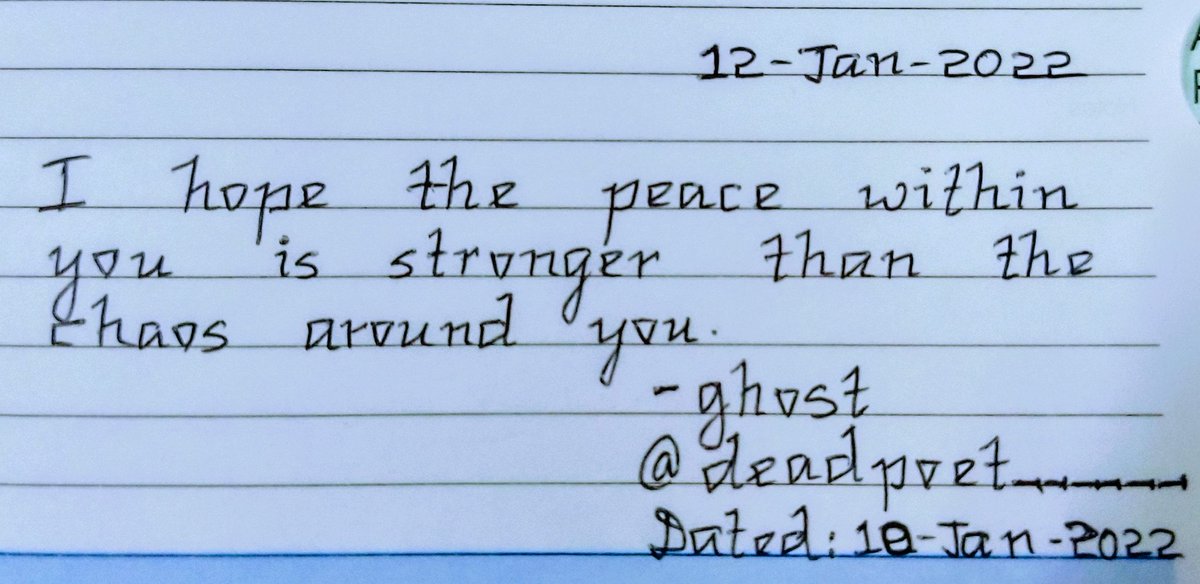 12-Jan-2022
I hope the peace within
you is stronger than the
chaos around you.
-ghost
@deadpoet______
Dated: 10-Jan-2022